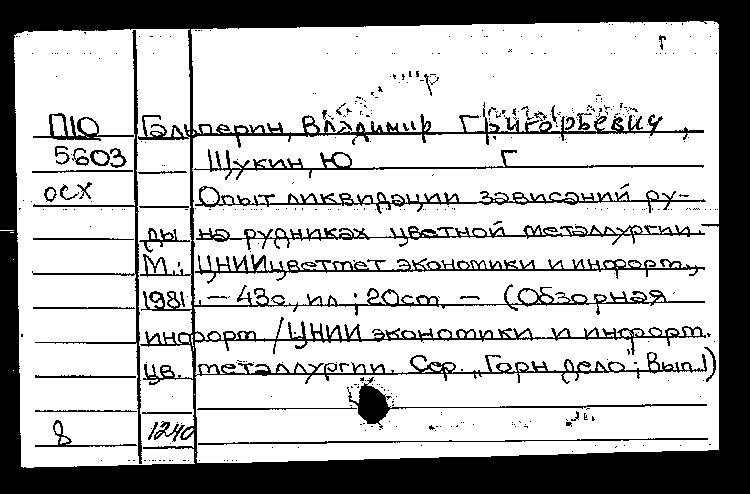 г
П10 Гальперин, Владимир Григорьевич,
5603 Щукин, Ю Г
осх Опыт ликвидации зависаний ру-
ды на рудниках цветной металлургии.
М.: ЦНИИцветмет экономики и информ.,
1981. — 43с, ил ; 20см. — (Обзорная
информ / ЦНИИ экономики и информ.
цв. металлургии. Сер. „Горн дело"; Вып. 1)
8 1240